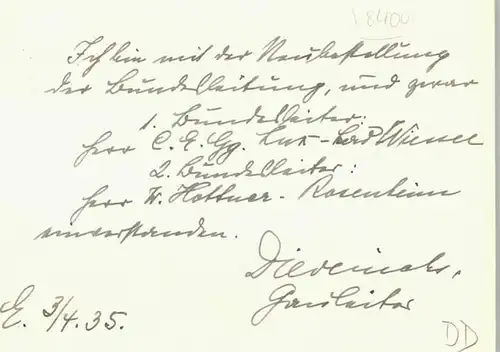 8400
Ich bin mit der Neubestellung
der Bundesleitung, und zwar
1. Bundesleiter:
Herr C. E. Gg. Lux - Bad Wiessee
2. Bundesleiter:
Herr W. Hottner - Rosenheim
einverstanden.
Gauleiter
E. 3/4.35.
DD